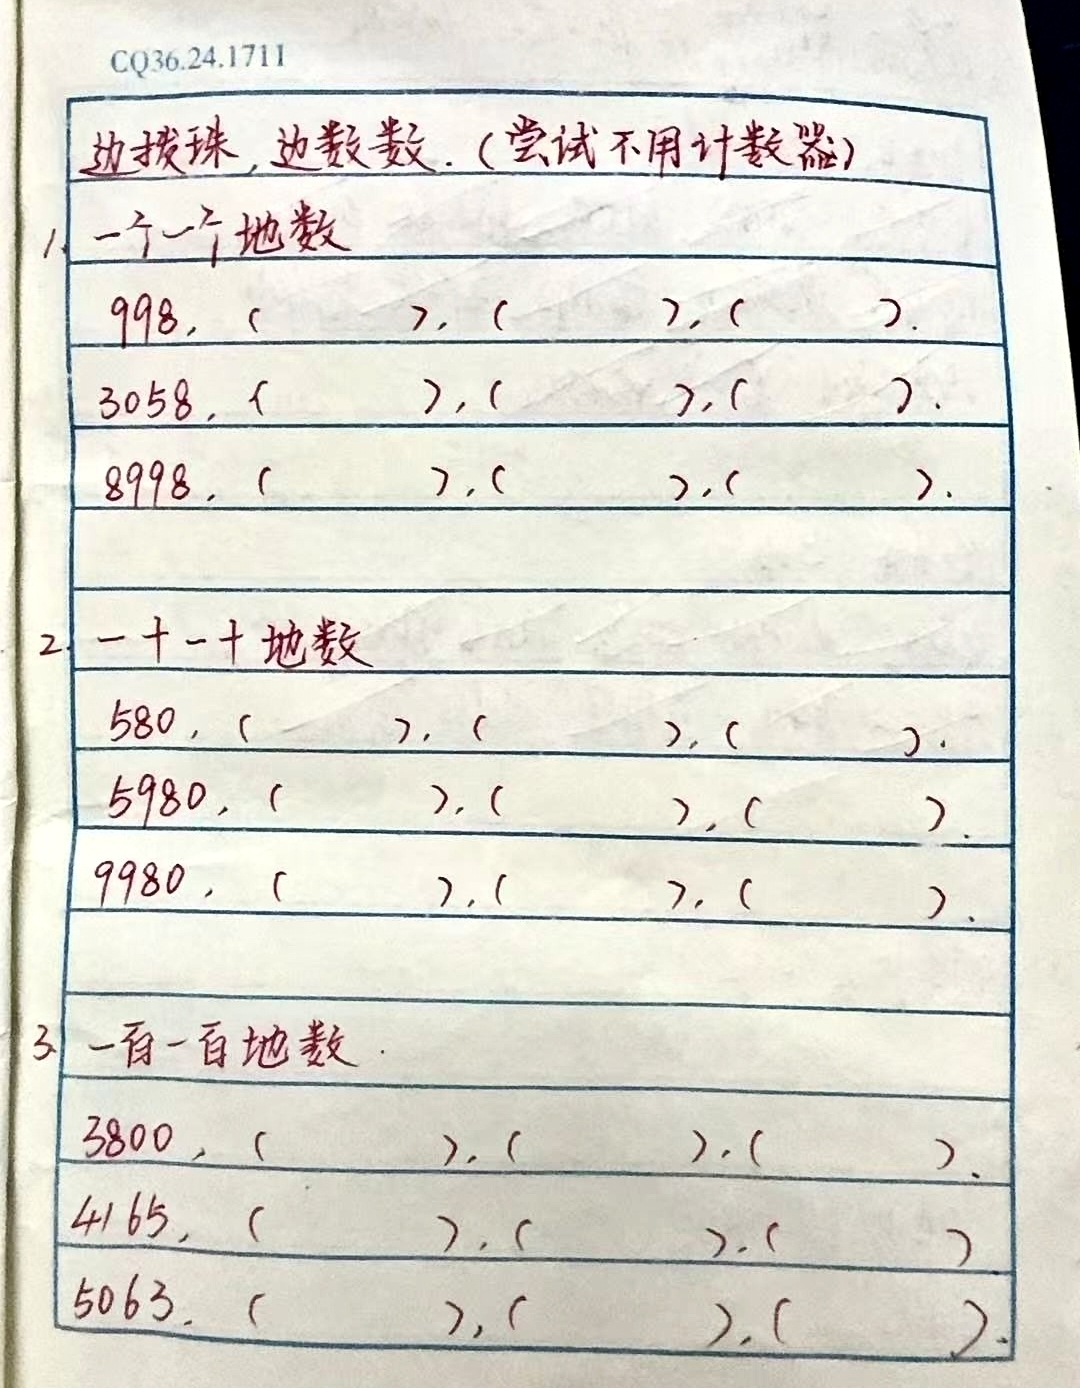 CQ36.24.1711
边拨珠,边数数.(尝试不用计数器)
1. 一个一个地数
998, ( ), ( ), ( ).
3058, ( ), ( ), ( ).
8998, ( ), ( ), ( ).
2. 一十一十地数
580, ( ), ( ), ( ).
5980, ( ), ( ), ( ).
9980, ( ), ( ), ( ).
3. 一百一百地数.
3800, ( ), ( ), ( ).
4165, ( ), ( ), ( )
5063, ( ), ( ), ( ).